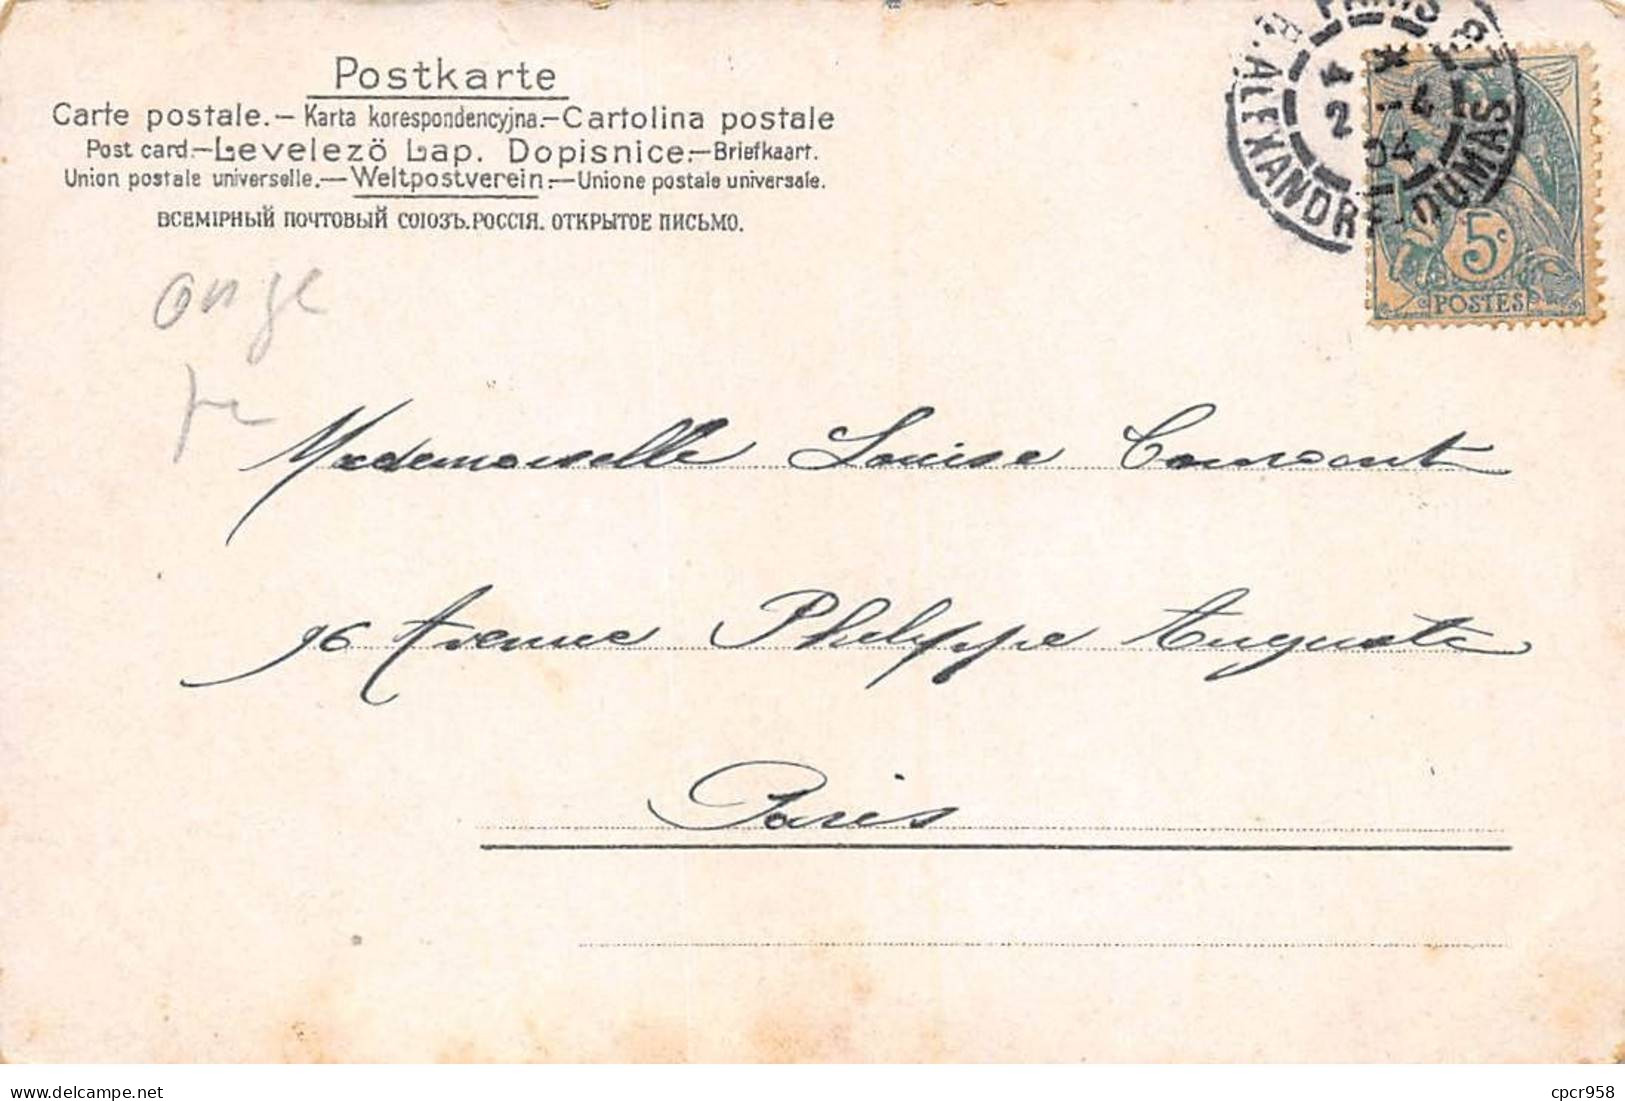 Postkarte
Carte postale.— Karta korespondencyjna.—Cartolina postale
Post card.—Levelezö Lap. Dopisnice.—Briefkaart.
Union postale universelle.—Weltpostverein.—Unione postale universale.
ВСЕМІРНЫЙ ПОЧТОВЫЙ СОЮЗЪ.РОССІЯ. ОТКРЫТОЕ ПИСЬМО.
PARIS
R. ALEXANDRE DUMAS
2 -4
04
5c
POSTES
ange
Mademoiselle Louise
96 Avenue Philippe Auguste
Paris
cpcr958